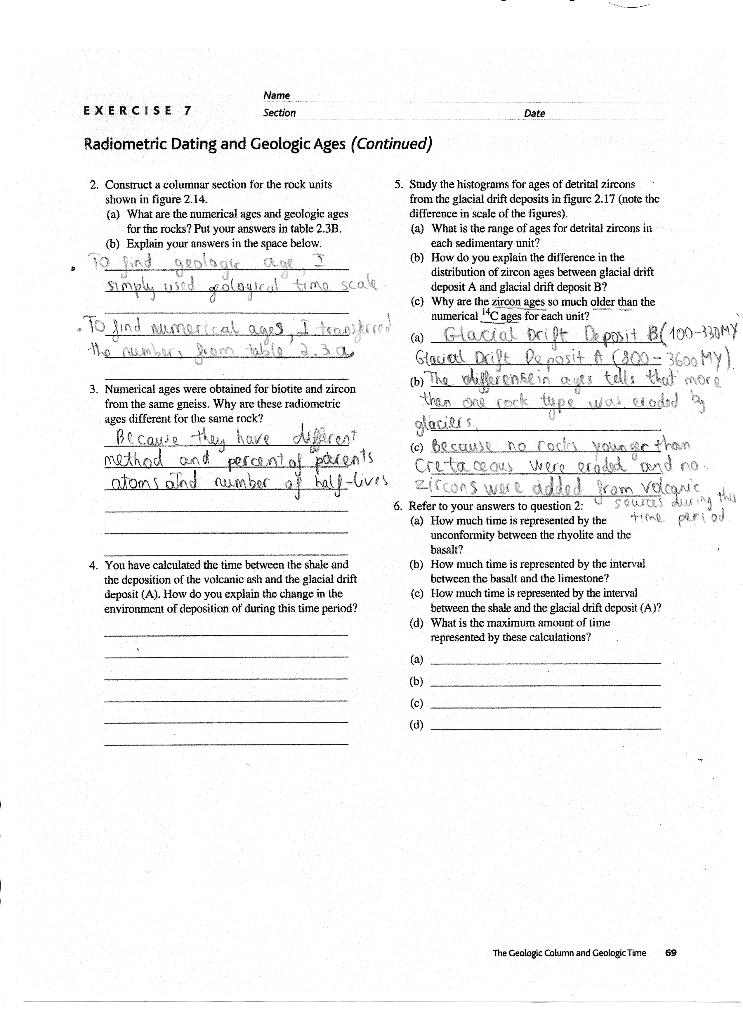 Name
EXERCISE 7
Section
Date
Radiometric Dating and Geologic Ages (Continued)
2. Construct a columnar section for the rock units
shown in figure 2.14.
(a) What are the numerical ages and geologic ages
for the rocks? Put your answers in table 2.3B.
(b) Explain your answers in the space below.
To find geologic age, I
simply used geological time scale
. To find numerical ages, I transferred
the numbers from table 2.3a
3. Numerical ages were obtained for biotite and zircon
from the same gneiss. Why are these radiometric
ages different for the same rock?
Because they have different
method and percent of parents
atoms and number of half-lives
4. You have calculated the time between the shale and
the deposition of the volcanic ash and the glacial drift
deposit (A). How do you explain the change in the
environment of deposition of during this time period?
5. Study the histograms for ages of detrital zircons
from the glacial drift deposits in figure 2.17 (note the
difference in scale of the figures).
(a) What is the range of ages for detrital zircons in
each sedimentary unit?
(b) How do you explain the difference in the
distribution of zircon ages between glacial drift
deposit A and glacial drift deposit B?
(c) Why are the zircon ages so much older than the
numerical ¹⁴C ages for each unit?
(a) Glacial Drift Deposit B(100-330MY
Glacial Drift Deposit A (800-3600MY).
(b) The difference in ages tells that more
than one rock type was eroded by
glaciers.
(c) Because no rocks younger than
Cretaceous were eroded and no
zircons were added from volcanic
sources during this
time period
6. Refer to your answers to question 2:
(a) How much time is represented by the
unconformity between the rhyolite and the
basalt?
(b) How much time is represented by the interval
between the basalt and the limestone?
(c) How much time is represented by the interval
between the shale and the glacial drift deposit (A)?
(d) What is the maximum amount of time
represented by these calculations?
(a)
(b)
(c)
(d)
The Geologic Column and Geologic Time 69